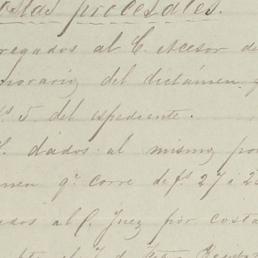 procesales.
regados al C. Acesor d
norario del dictámen
fs 5 del espediente.
dados al mismo po
men qe corre de fs 27 á 2
ados al C. Juez por costa